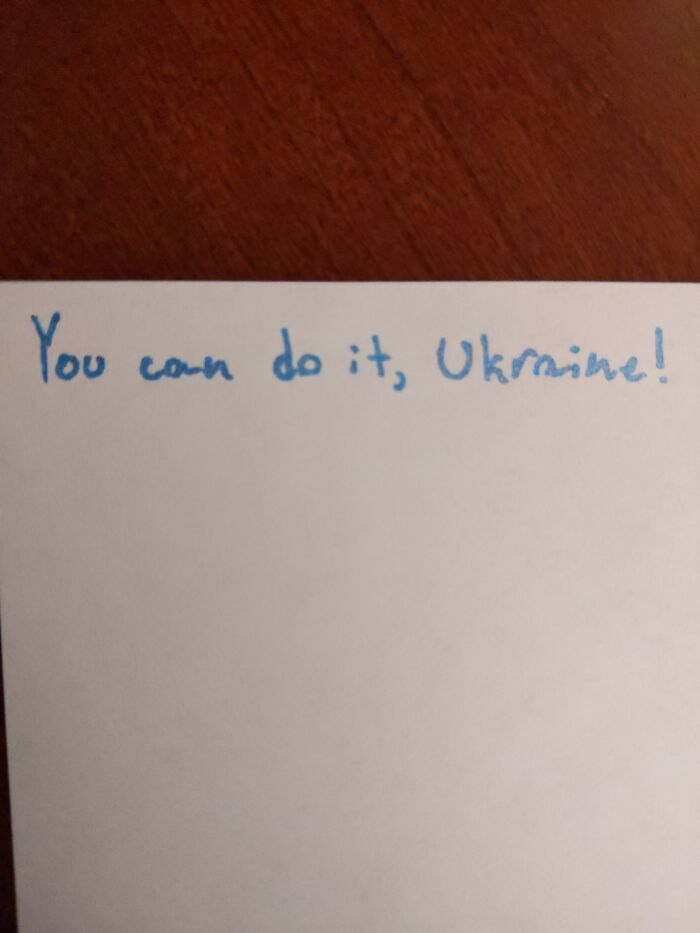 You can do it, Ukraine!